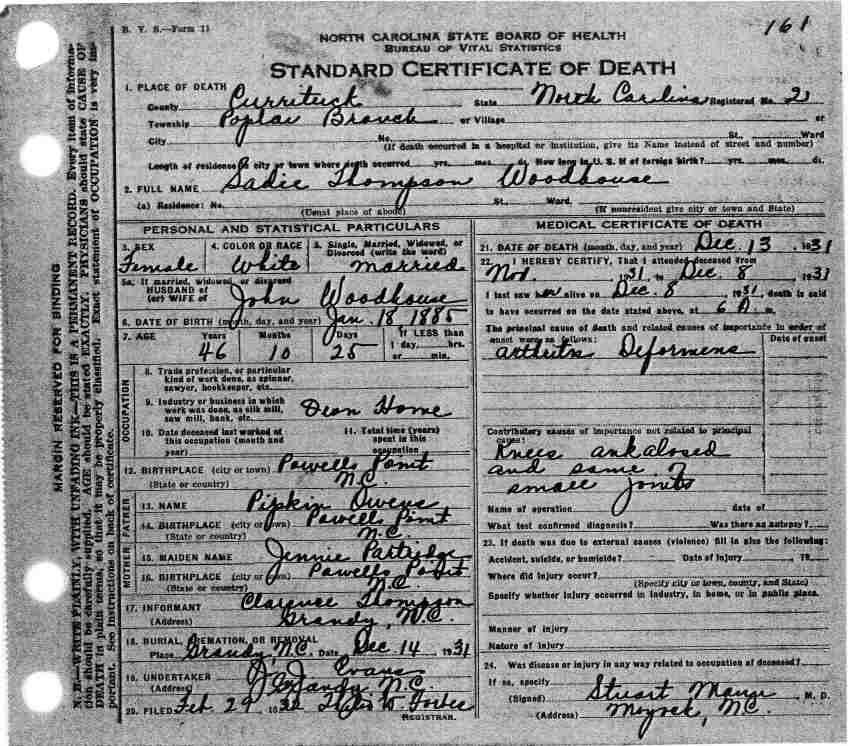 161
B. V. S.—Form 11
NORTH CAROLINA STATE BOARD OF HEALTH
BUREAU OF VITAL STATISTICS
STANDARD CERTIFICATE OF DEATH
MARGIN RESERVED FOR BINDING
N. B.—WRITE PLAINLY, WITH UNFADING INK—THIS IS A PERMANENT RECORD. Every item of informa-
tion should be carefully supplied. AGE should be stated EXACTLY. PHYSICIANS should state CAUSE OF
DEATH in plain terms, so that it may be properly classified. Exact statement of OCCUPATION is very im-
portant. See instructions on back of certificate.
1. PLACE OF DEATH
County Currituck State North Carolina Registered No. 2
Township Poplar Branch or Village or
City No. St., Ward
(If death occurred in a hospital or institution, give its Name instead of street and number)
Length of residence in city or town where death occurred yrs. mos. ds. How long in U. S. if of foreign birth? yrs. mos. ds.
2. FULL NAME Sadie Thompson Woodhouse
(a) Residence: No. St., Ward,
(Usual place of abode) (If nonresident give city or town and State)
PERSONAL AND STATISTICAL PARTICULARS
3. SEX 4. COLOR OR RACE 5. Single, Married, Widowed, or
Divorced (write the word)
Female White Married
5a. If married, widowed, or divorced
HUSBAND of
(or) WIFE of John Woodhouse
6. DATE OF BIRTH (month, day, and year) Jan. 18 1885
7. AGE Years Months Days If LESS than
1 day, hrs.
46 10 25 or min.
OCCUPATION
8. Trade, profession, or particular
kind of work done, as spinner,
sawyer, bookkeeper, etc.
9. Industry or business in which
work was done, as silk mill,
saw mill, bank, etc. Home
10. Date deceased last worked at
this occupation (month and
year)
11. Total time (years)
spent in this
occupation
12. BIRTHPLACE (city or town) Powells Point
(State or country) N.C.
FATHER
13. NAME Pipkin Owens
14. BIRTHPLACE (city or town) Powells Point
(State or country) N.C.
MOTHER
15. MAIDEN NAME Jennie Partridge
16. BIRTHPLACE (city or town) Powells Point
(State or country) N.C.
17. INFORMANT Clarence Thompson
(Address) Grandy, N.C.
18. BURIAL, CREMATION, OR REMOVAL
Place Grandy, N.C. Date Dec. 14 1931
19. UNDERTAKER Evans
(Address) N.C.
20. FILED Feb 29 1932 W Forbes
REGISTRAR.
MEDICAL CERTIFICATE OF DEATH
21. DATE OF DEATH (month, day, and year) Dec. 13, 1931
22. I HEREBY CERTIFY, That I attended deceased from
Nov. 1931 to Dec. 8, 1931
I last saw her alive on Dec. 8, 1931, death is said
to have occurred on the date stated above, at 6 A. m.
The principal cause of death and related causes of importance in order of
onset were as follows: Date of onset
Arthritis Deformens
Contributory causes of importance not related to principal
cause:
Knees ankalosed
and some
small Joints
Name of operation date of
What test confirmed diagnosis? Was there an autopsy?
23. If death was due to external causes (violence) fill in also the following:
Accident, suicide, or homicide? Date of injury 19
Where did injury occur?
(Specify city or town, county, and State)
Specify whether injury occurred in industry, in home, or in public place.
Manner of injury
Nature of injury
24. Was disease or injury in any way related to occupation of deceased?
If so, specify
(Signed) Stuart M. D.
(Address) Moyock, N.C.